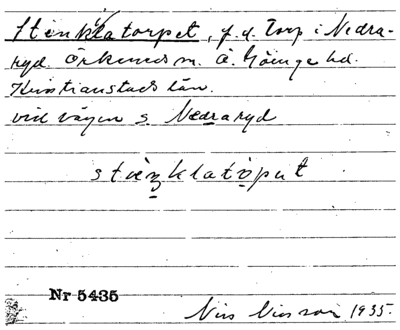 Stenklatorpet, f.d. Torp i Nedra-
ryd. Örkeneds sn. Ö. Göinge hd.
Kristianstads län.
vid vägen s Nedraryd
stienklatoput
Nr 5435
Nils Nilsson 1935.